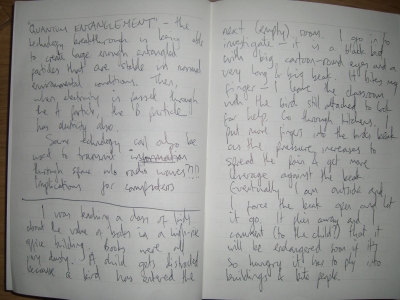 "QUANTUM ENTANGLEMENT" - the
technology breakthrough is being able
to create large enough entangled
particles that are stable in normal
environmental conditions. Then,
when electricity is passed through
the A particle, the B particle
has electricity also.
Same technology can also be
used to transmit information
through space via radio waves?!!
Implications for computers
I was teaching a class of kids
about the value of books in a high-rise
office building. Books were all
very dusty. A child gets distracted
because a bird has entered the
next (empty) room. I go in to
investigate - it is a black bird
with big, cartoon-round eyes and a
very long & big beak. It bites my
finger - I leave the classroom
with the bird still attached to look
for help. Go through kitchens,
put more fingers into the birds beak
as the pressure increases to
spread the pain & get more
leverage against the beak.
Eventually I am outside and
I force the beak open and let
it go. It flies away and I
comment (to the child?) that it
will be endangered soon if it's
so hungry it has to fly into
buildings & bite people.